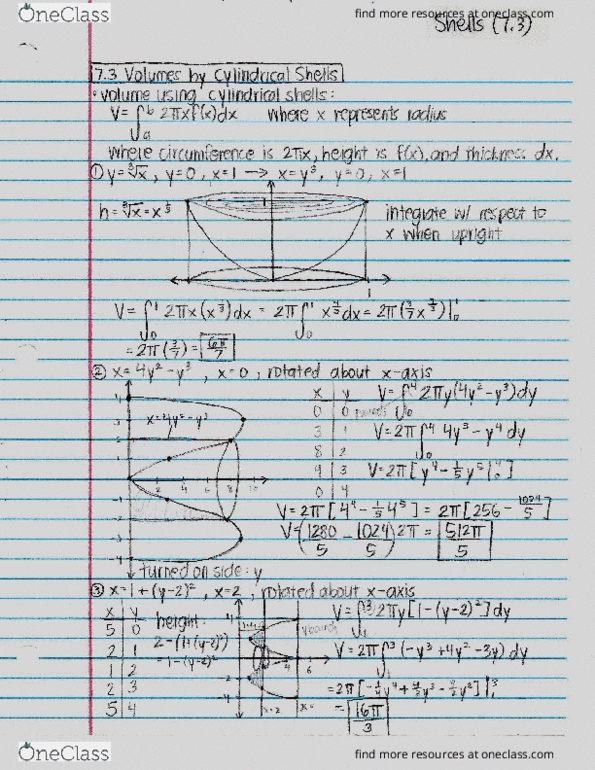 OneClass
find more resources at oneclass.com
Shells (7.3)
7.3 Volumes by Cylindrical Shells
• volume using cylindrical shells:
V = ∫ₐᵇ 2πxf(x)dx where x represents radius
where circumference is 2πx, height is f(x), and thickness dx.
① y = ∛x, y=0, x=1 → x=y³, y=0, x=1
h = ∛x = x^(1/3)
integrate w/ respect to
x when upright
1
1
V = ∫₀¹ 2πx(x^(1/3))dx = 2π∫₀¹ x^(4/3)dx = 2π(3/7 x^(7/3))|₀¹
= 2π(3/7) = 6π/7
② x = 4y² - y³, x=0, rotated about x-axis
x y
0 0
3 1
8 2
9 3
0 4
x=4y²-y³
V = ∫₀⁴ 2πy(4y²-y³)dy
V = 2π∫₀⁴ 4y³ - y⁴ dy
V = 2π[y⁴ - 1/5 y⁵|₀⁴]
V = 2π[4⁴ - 1/5 4⁵] = 2π[256 - 1024/5]
V = (1280/5 - 1024/5)2π = 512π/5
turned on side: y
③ x = 1+(y-2)², x=2, rotated about x-axis
x y
5 0
2 1
1 2
2 3
5 4
height:
2-(1+(y-2)²)
= 1-(y-2)²
V = ∫₁³ 2πy[1-(y-2)²]dy
V = 2π∫₁³ (-y³+4y²-3y)dy
= 2π[-1/4 y⁴ + 4/3 y³ - 3/2 y²]|₁³
= 16π/3
OneClass
find more resources at oneclass.com